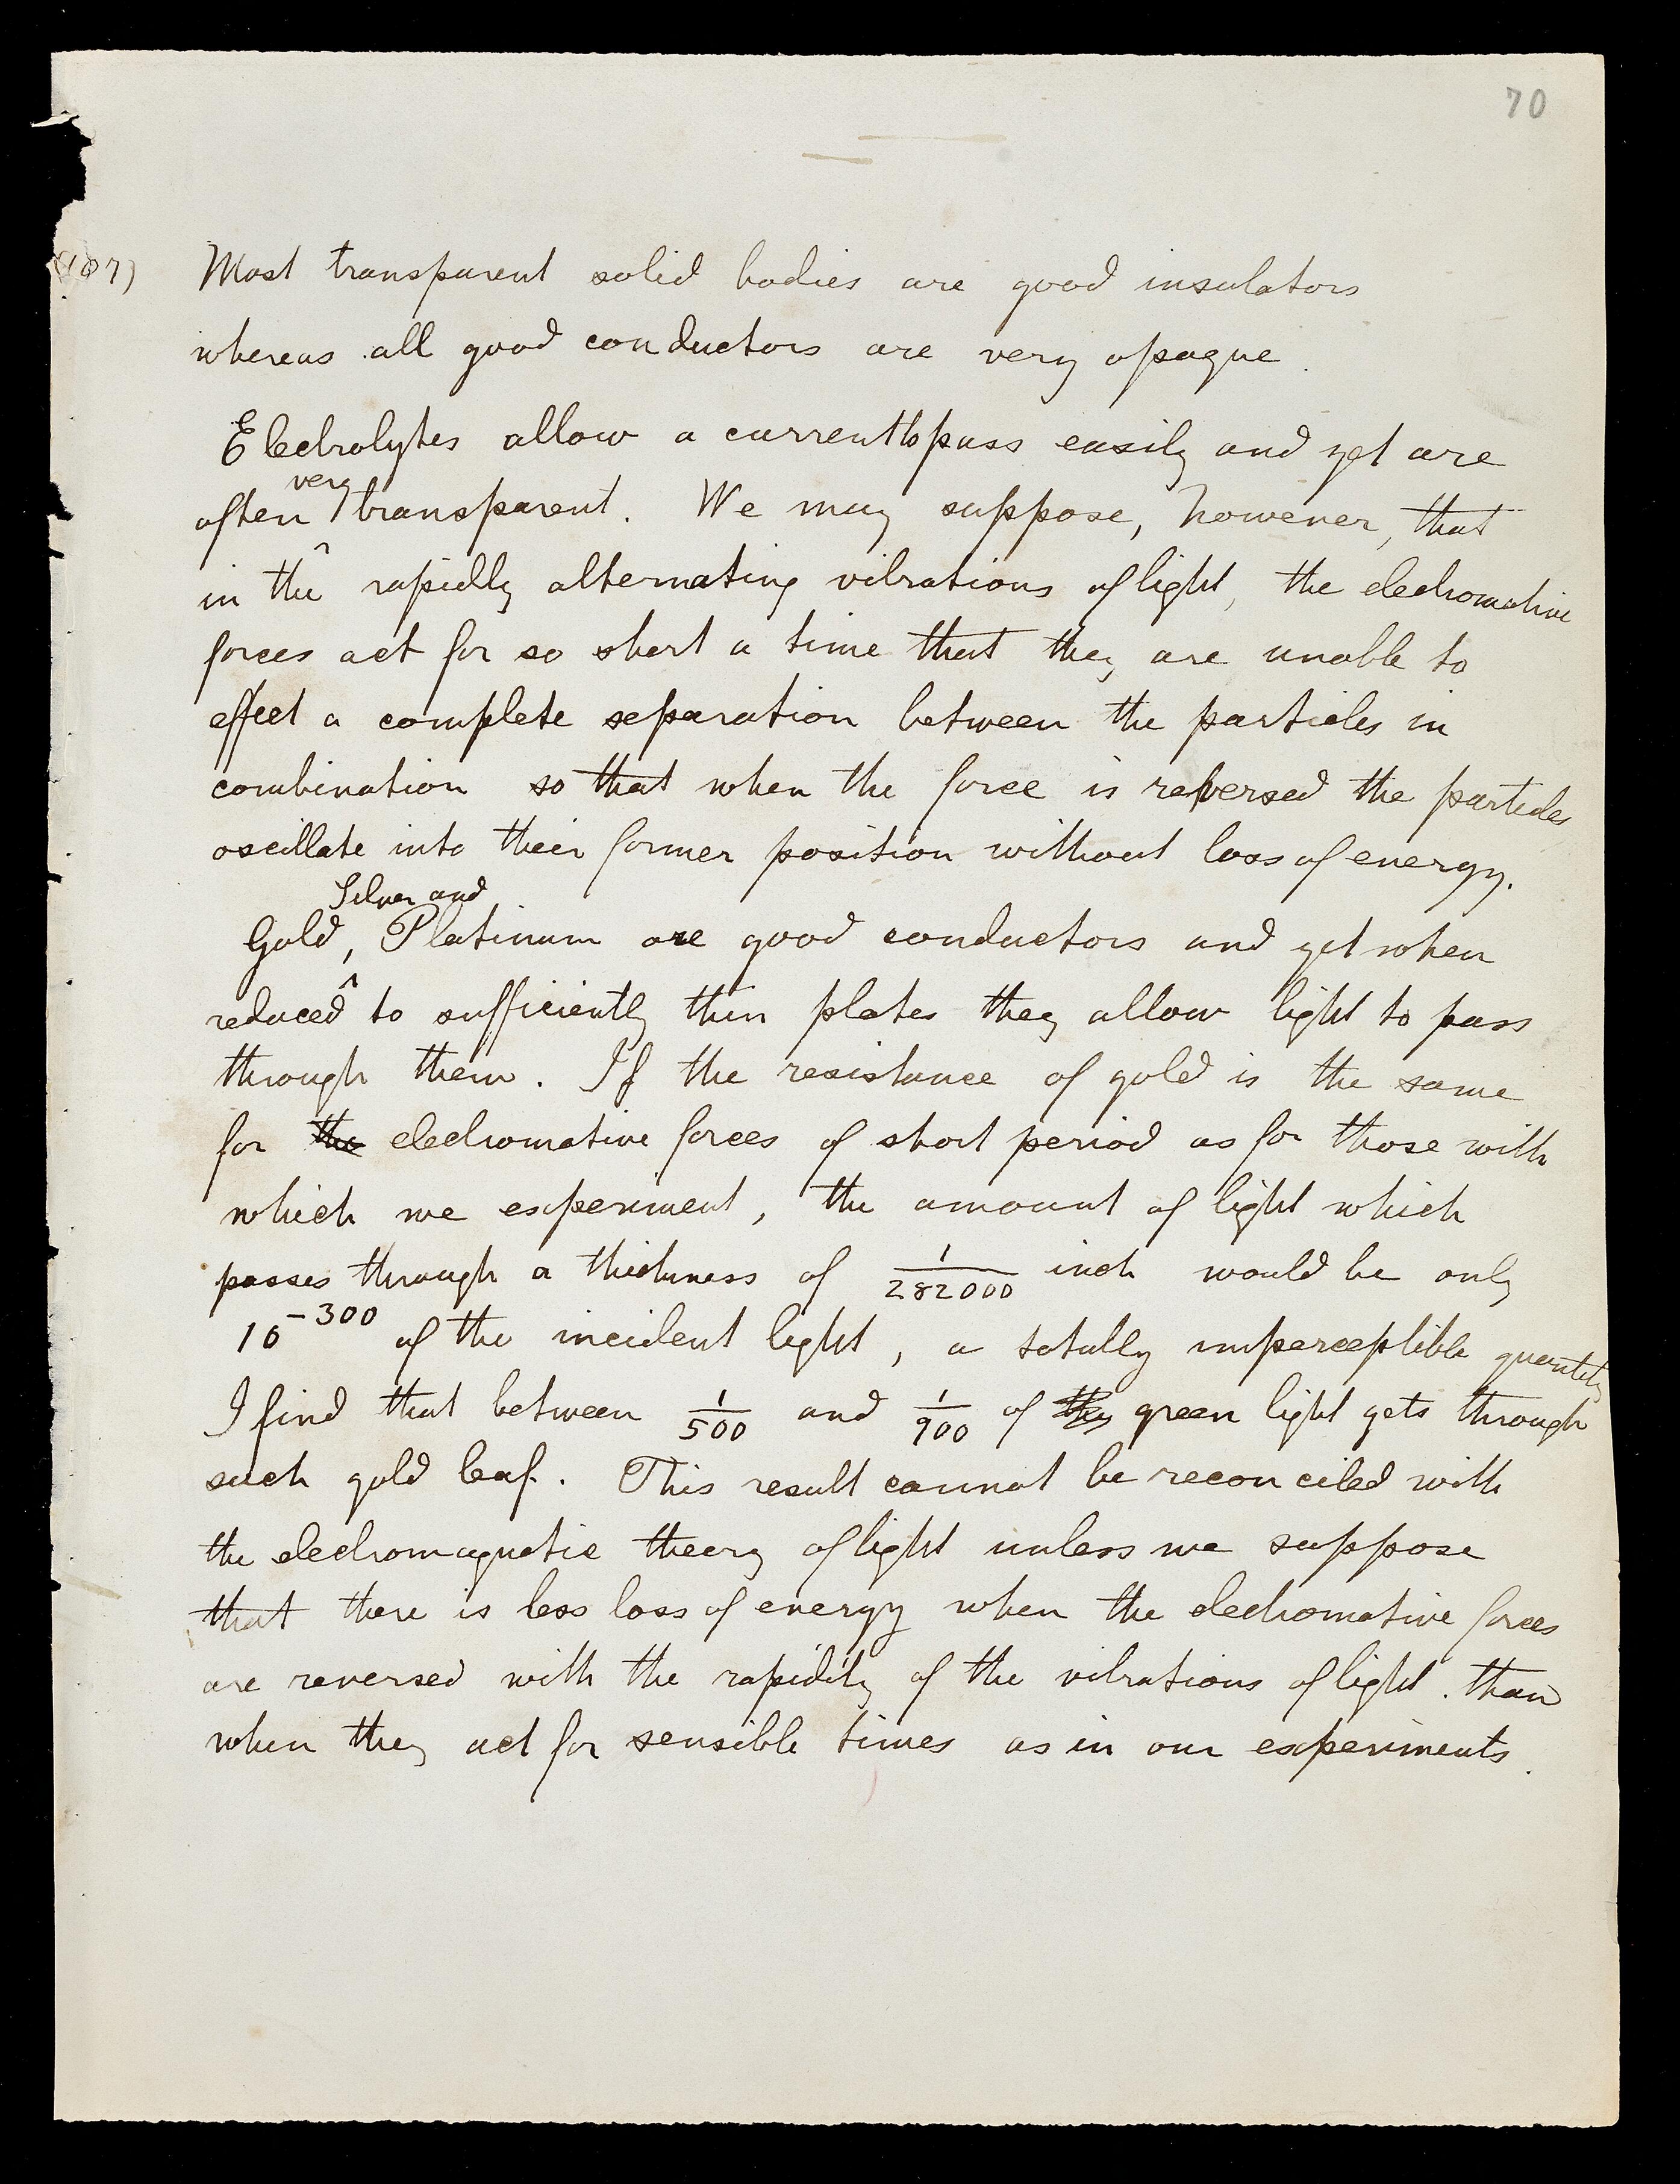 70
(107) Most transparent solid bodies are good insulators
whereas all good conductors are very opaque.
Electrolytes allow a current to pass easily and yet are
very
often transparent. We may suppose, however, that
in the rapidly alternating vibrations of light, the electromotive
forces act for so short a time that they are unable to
effect a complete separation between the particles in
combination so that when the force is reversed the particles
oscillate into their former position without loss of energy.
Silver and
Gold, Platinum are good conductors and yet when
reduced to sufficiently thin plates they allow light to pass
through them. If the resistance of gold is the same
for the electromotive forces of short period as for those with
which we experiment, the amount of light which
passes through a thickness of 1/282000 inch would be only
10^-300 of the incident light, a totally imperceptible quantity
I find that between 1/500 and 1/900 of the green light gets through
such gold leaf. This result cannot be reconciled with
the electromagnetic theory of light unless we suppose
that there is less loss of energy when the electromotive forces
are reversed with the rapidity of the vibrations of light than
when they act for sensible times as in our experiments.